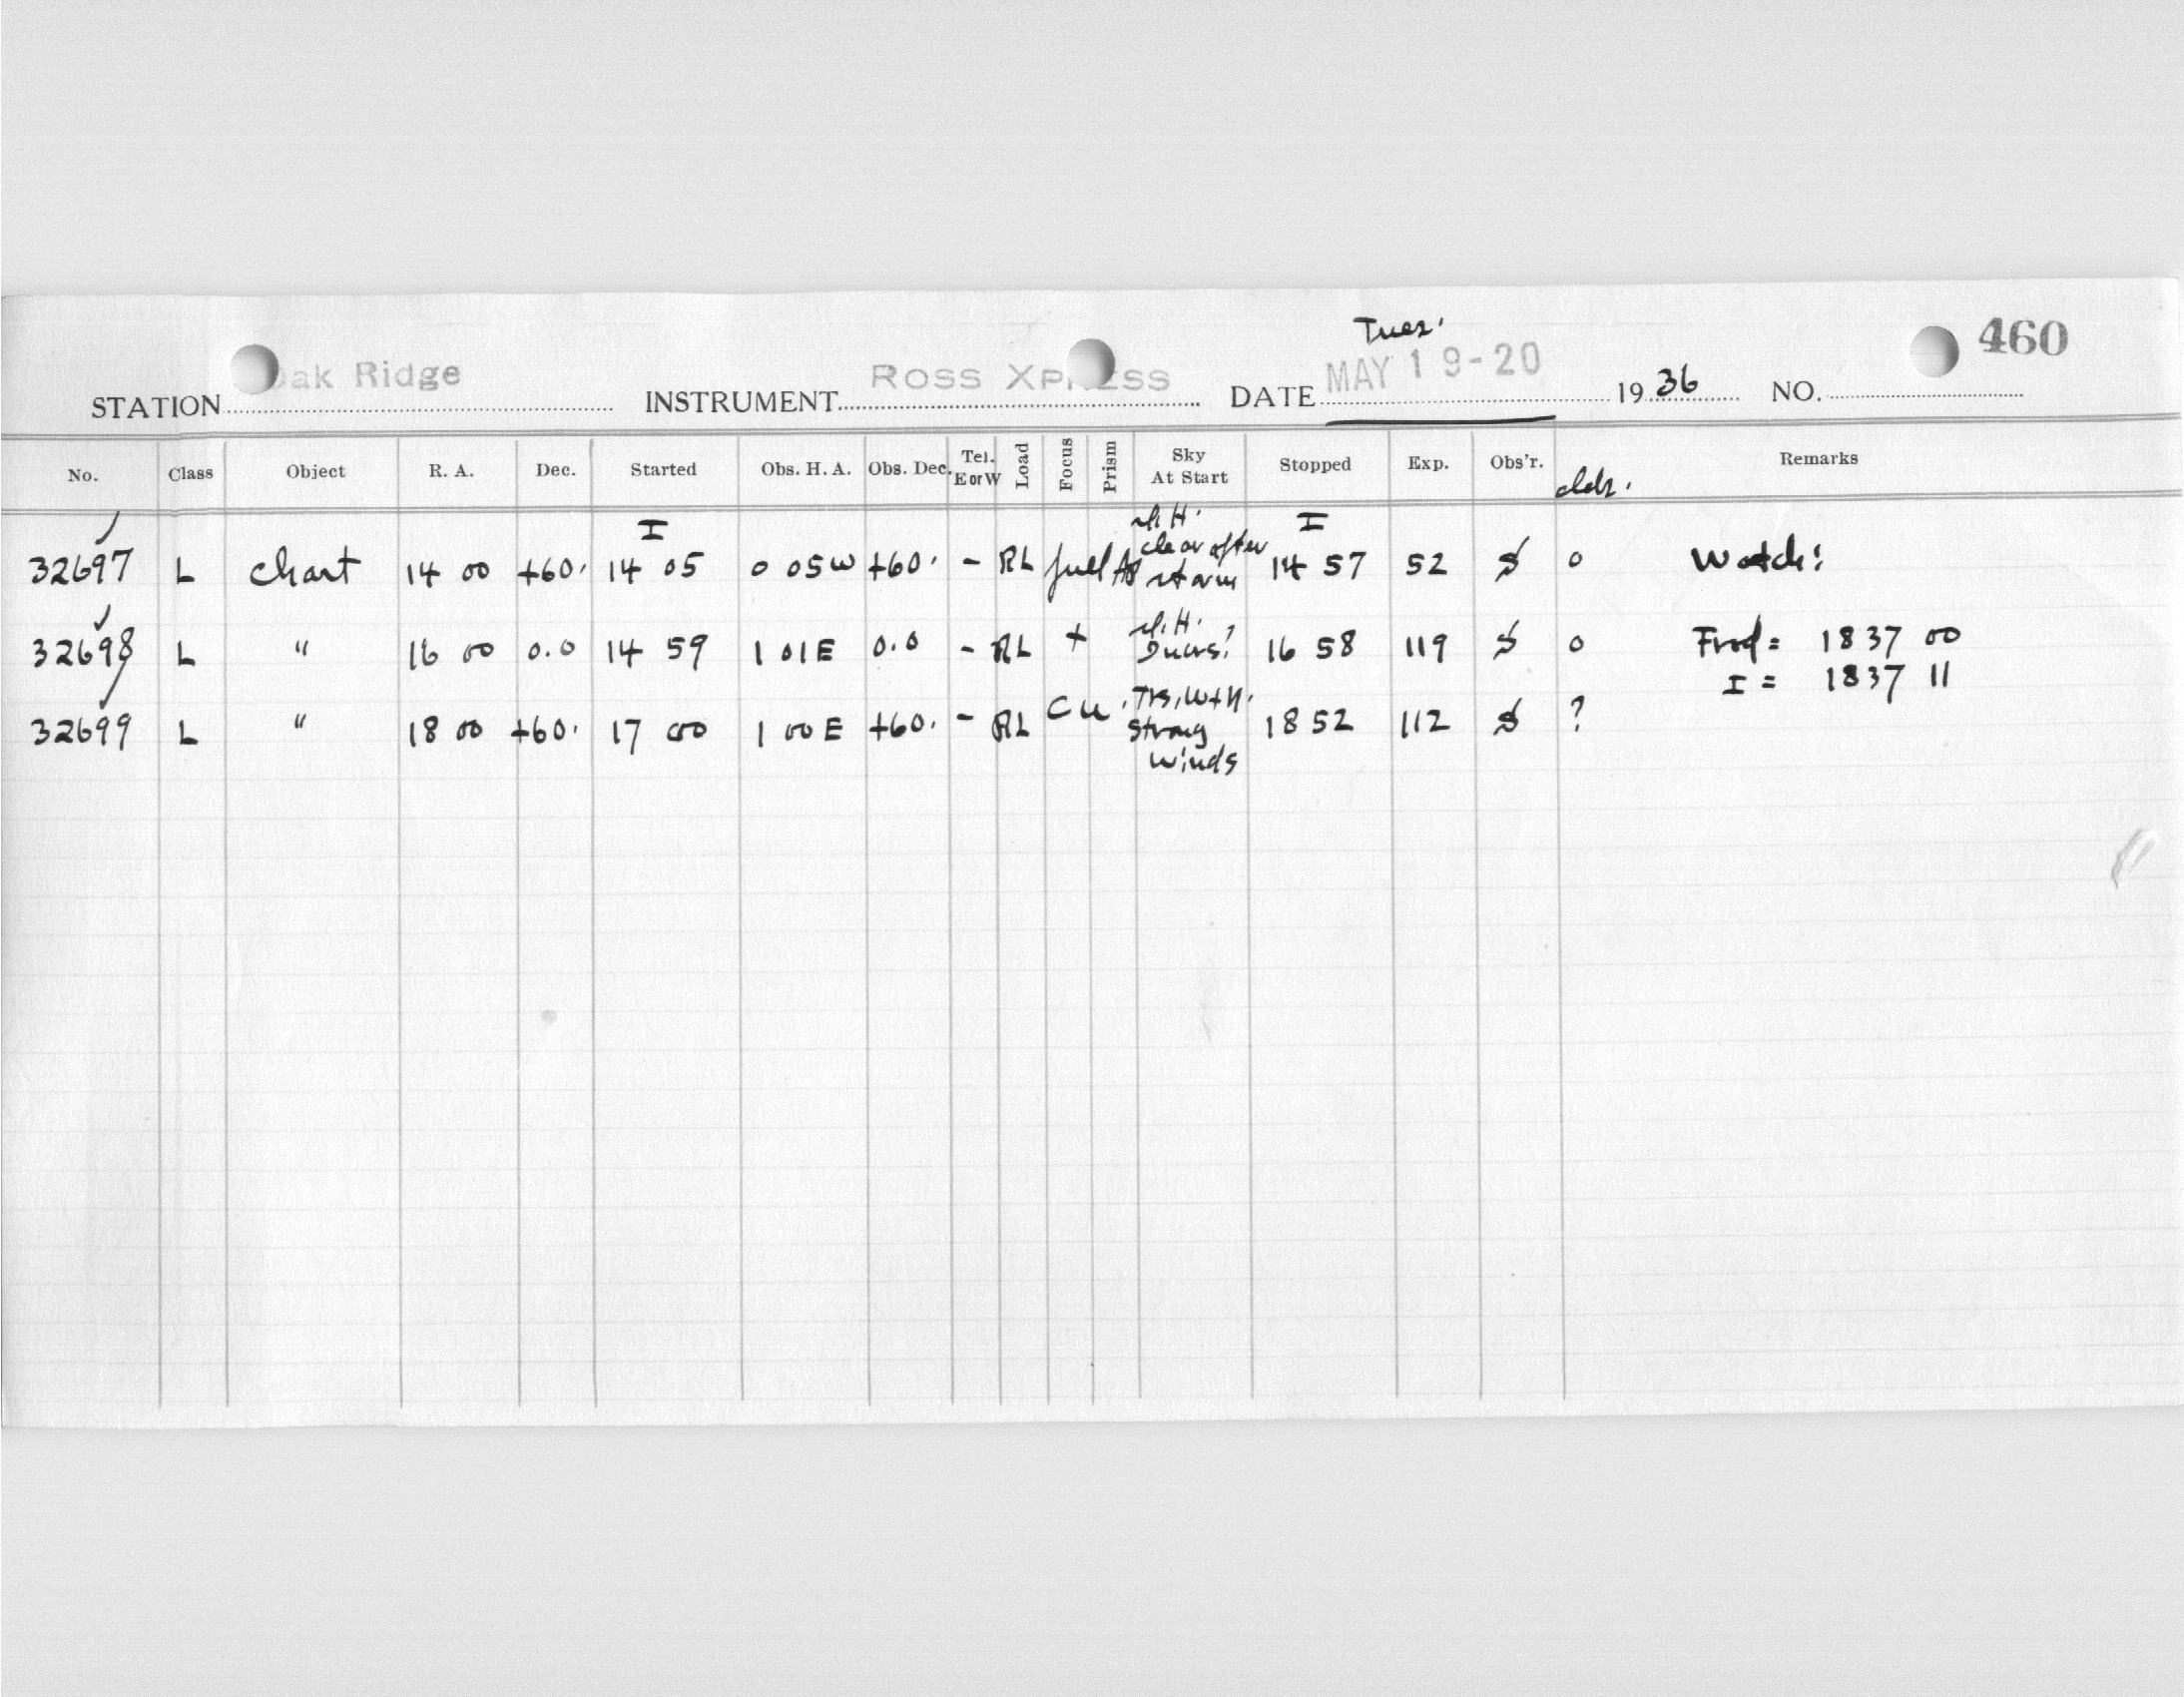 Tues.
460
STATION Oak Ridge INSTRUMENT ROSS XPRESS DATE MAY 19-20 1936 NO.
No. Class Object R. A. Dec. Started Obs. H. A. Obs. Dec. Tel. E or W Load Focus Prism Sky At Start Stopped Exp. Obs'r. Remarks
I I
32697 L Chart 14 00 +60. 14 05 0 05W +60. - RL clear after storm 14 57 52 0 Watch:
32698 L " 16 00 0.0 14 59 1 01E 0.0 - RL + 16 58 119 0 Frod = 1837 00
I = 1837 11
32699 L " 18 00 +60. 17 00 1 00 E +60. - RL Strong winds 18 52 112 ?